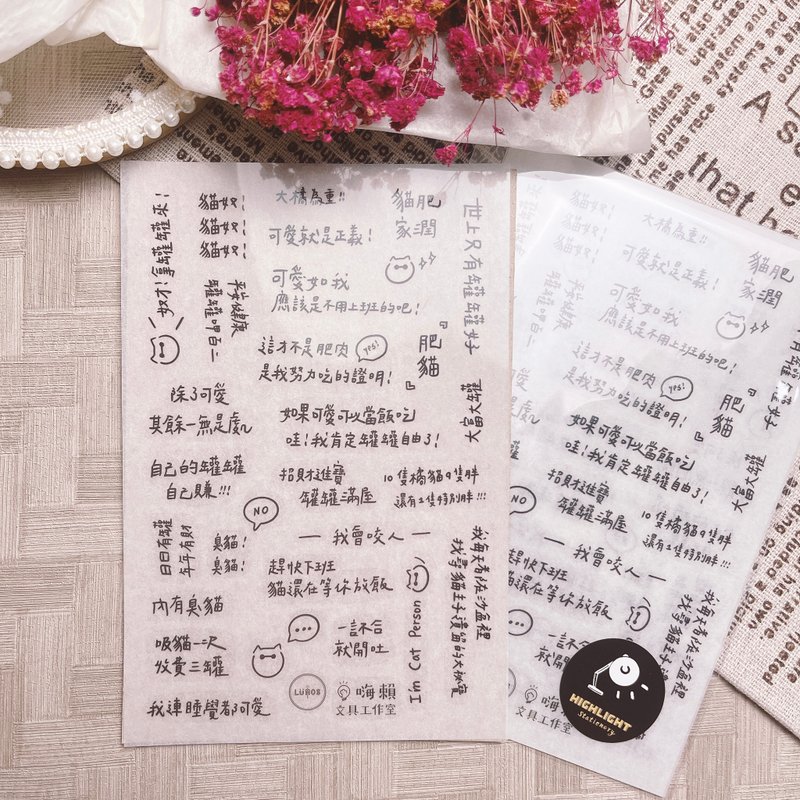 奴才!拿罐罐來!
貓奴!
貓奴!
貓奴!
平安健康
罐罐呷百二
大橘為重!!
可愛就是正義!
貓肥
家潤
可愛如我
應該是不用上班的吧!
世上只有罐罐好
這才不是肥肉
yes!
是我努力吃的證明!
『肥貓』
除了可愛
其餘一無是處~
如果可愛可以當飯吃
哇!我肯定罐罐自由了!
大富大罐
自己的罐罐
自己賺!!!
招財進寶
罐罐滿屋
10隻橘貓9隻胖
還有1隻特別胖!!!
NO
日日有罐
年年有財
臭貓!
臭貓!
— 我會咬人 —
趕快下班
貓還在等你放飯
我每天都在沙盆裡
找尋貓主子遺留的大秘寶
內有臭貓
I'm Cat Person
吸貓一次
收費三罐
一言不合
就開吐
我連睡覺都可愛
LUÑOS
嗨賴
文具工作室
大橘為重!!
貓奴!
貓奴!
貓奴!
可愛就是正義!
貓肥
家潤
平安健康
可愛如我
應該是不用上班的吧!
這才不是肥肉
yes!
是我努力吃的證明!
『肥貓』
如果可愛可以當飯吃
哇!我肯定罐罐自由了!
大富大罐
招財進寶
罐罐滿屋
10隻橘貓9隻胖
還有1隻特別胖!!!
NO
— 我會咬人 —
趕快下班
貓還在等你放飯
一言不合
就開吐
嗨賴
文具工作室
HIGHLIGHT
Stationery